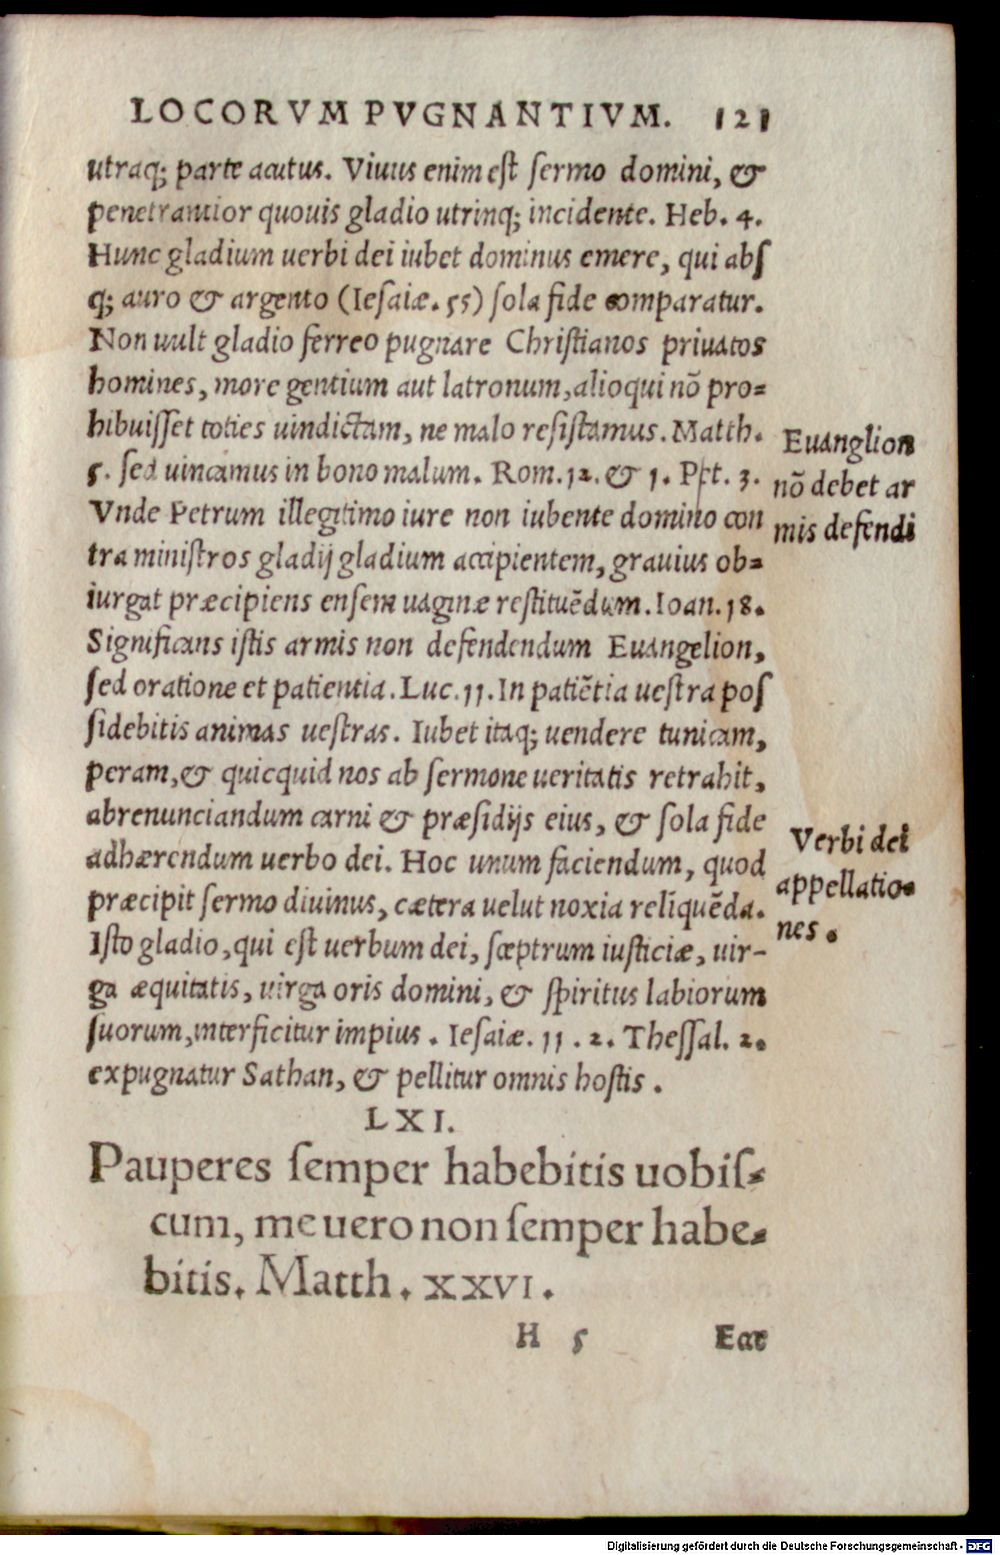 LOCORVM PVGNANTIVM. 121
utraq; parte acutus. Viuus enim est sermo domini, &
penetrantior quouis gladio utrinq; incidente. Heb. 4.
Hunc gladium uerbi dei iubet dominus emere, qui abs
q; auro & argento (Iesaiæ. 55) sola fide comparatur.
Non uult gladio ferreo pugnare Christianos priuatos
homines, more gentium aut latronum, alioqui nõ pro=
hibuisset toties uindictam, ne malo resistamus. Matth.
5. sed uincamus in bono malum. Rom. 12. & 1. Pet. 3.
Vnde Petrum illegitimo iure non iubente domino con
tra ministros gladij gladium accipientem, grauius ob=
iurgat præcipiens ensem uaginæ restituẽdum. Ioan. 18.
Significans istis armis non defendendum Euangelion,
sed oratione et patientia. Luc. 11. In patiẽtia uestra pos
sidebitis animas uestras. Iubet itaq; uendere tunicam,
peram, & quicquid nos ab sermone ueritatis retrahit,
abrenunciandum carni & præsidijs eius, & sola fide
adhærendum uerbo dei. Hoc unum faciendum, quod
præcipit sermo diuinus, cætera uelut noxia reliquẽda.
Isto gladio, qui est uerbum dei, sceptrum iusticiæ, uir-
ga æquitatis, uirga oris domini, & spiritus labiorum
suorum, interficitur impius. Iesaiæ. 11. 2. Thessal. 2.
expugnatur Sathan, & pellitur omnis hostis.
Euanglion
nõ debet ar
mis defendi
Verbi dei
appellatio=
nes.
LXI.
Pauperes semper habebitis uobis=
cum, me uero non semper habe=
bitis. Matth. XXVI.
H 5 Eat
Digitalisierung gefördert durch die Deutsche Forschungsgemeinschaft - DFG